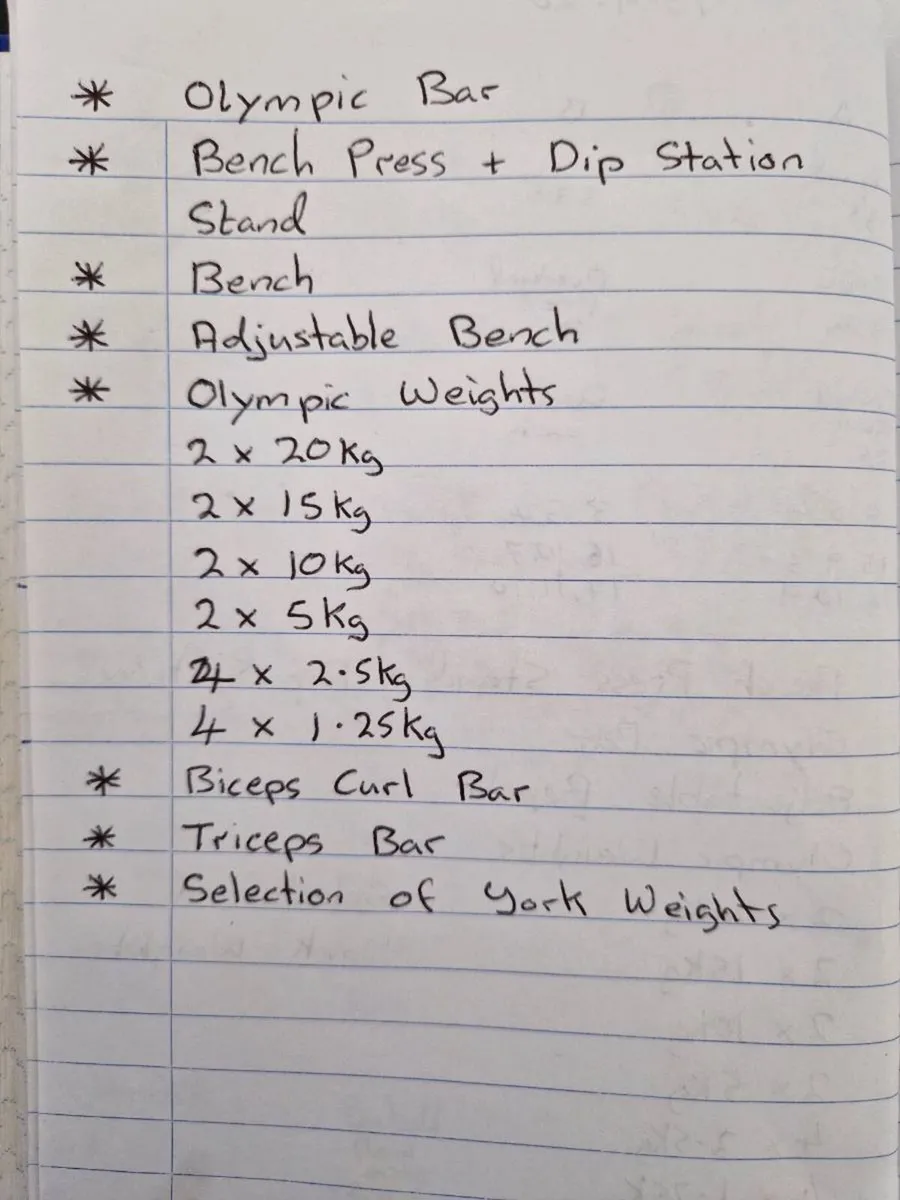 * Olympic Bar
* Bench Press + Dip Station
Stand
* Bench
* Adjustable Bench
* Olympic Weights
2 x 20kg
2 x 15kg
2 x 10kg
2 x 5kg
4 x 2.5kg
4 x 1.25kg
* Biceps Curl Bar
* Triceps Bar
* Selection of York Weights